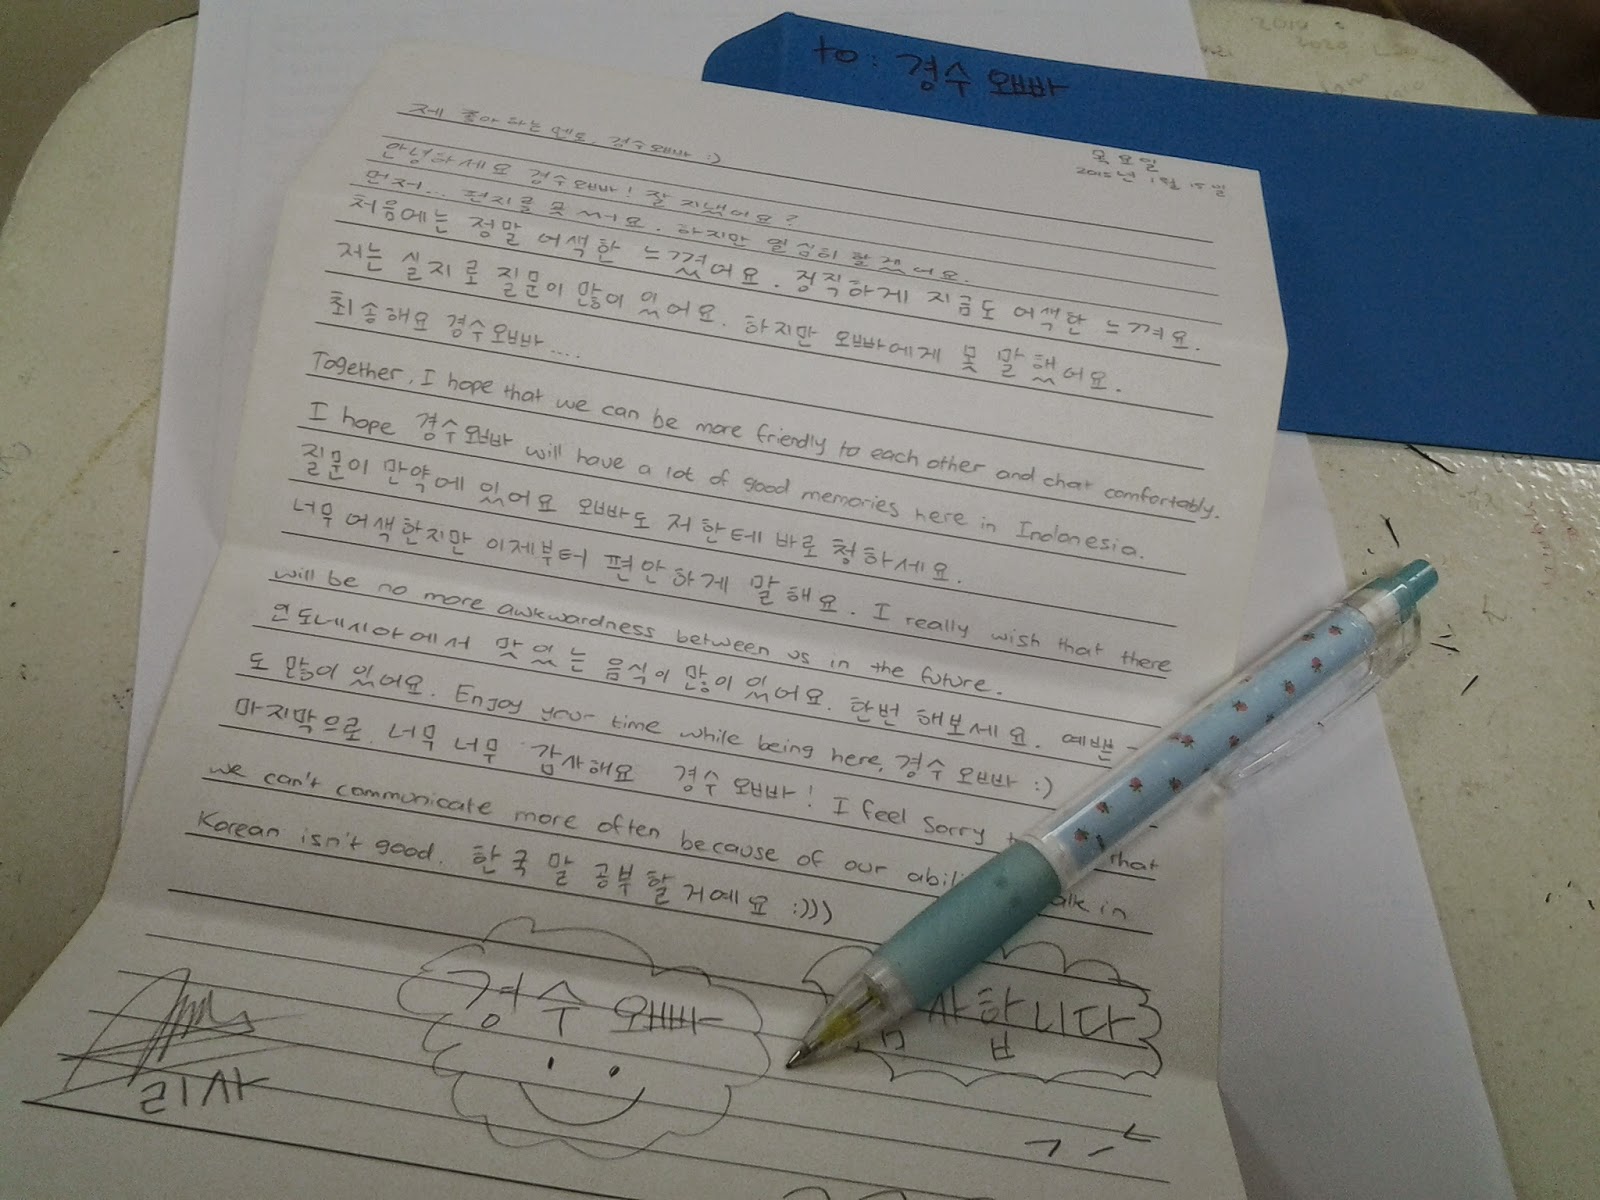 to: 경수 오빠
제 좋아하는 멘토, 경수오빠 :)
목요일
2015년 1월 15일
안녕하세요 경수오빠! 잘 지냈어요?
먼저... 편지를 못 써요. 하지만 열심히 할 겠어요.
처음에는 정말 어색한 느꼈어요. 정직하게 지금도 어색한 느껴요.
저는 실지로 질문이 많이 있어요. 하지만 오빠에게 못 말했어요.
최송해요 경수오빠....
Together, I hope that we can be more friendly to each other and chat comfortably.
I hope 경수오빠 will have a lot of good memories here in Indonesia.
질문이 만약에 있어요 오빠도 저한테 바로 청하세요.
너무 어색한지만 이제부터 편안하게 말해요. I really wish that there
will be no more awkwardness between us in the future.
인도네시아에서 맛있는 음식이 많이 있어요. 한번 해보세요. 예쁜
도 많이 있어요. Enjoy your time while being here, 경수 오빠 :)
마지막으로, 너무 너무 감사해요 경수 오빠! I feel sorry that
we can't communicate more often because of our abili alk in
Korean isn't good. 한국말 공부할거예요 :)))
경수 오빠
사합니다
리사